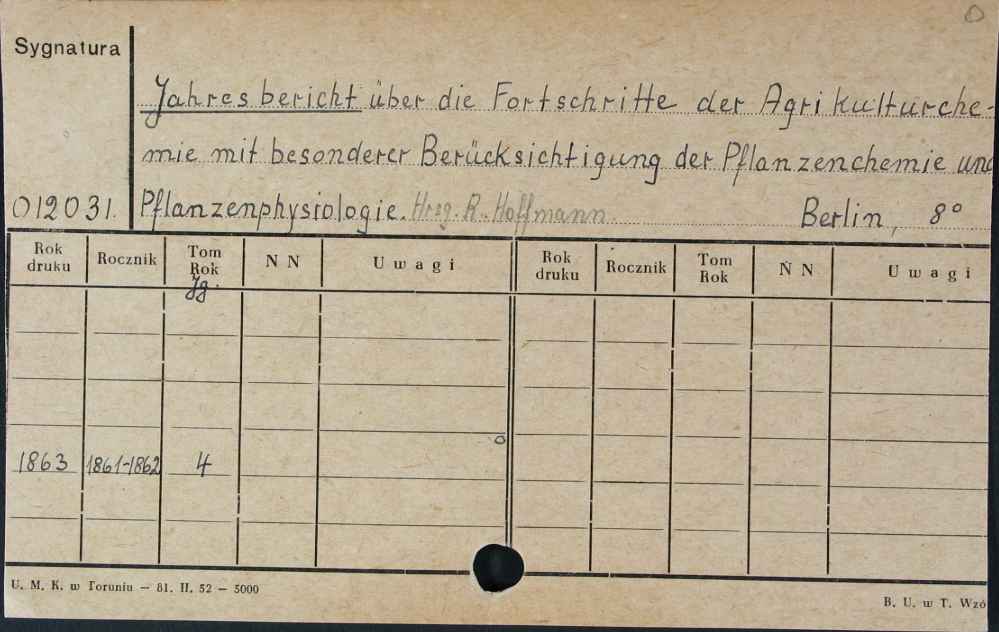 Sygnatura
Jahresbericht über die Fortschritte der Agrikulturche-
mie mit besonderer Berücksichtigung der Pflanzenchemie und
012031. Pflanzenphysiologie. Hrsg. R. Hoffmann Berlin, 8°
Rok druku Rocznik Tom Rok N N U w a g i Rok druku Rocznik Tom Rok N N U w a g i
Jg.
1863 1861-1862 4
U. M. K. w Toruniu — 81. II. 52 — 5000
B. U. w T. Wzó